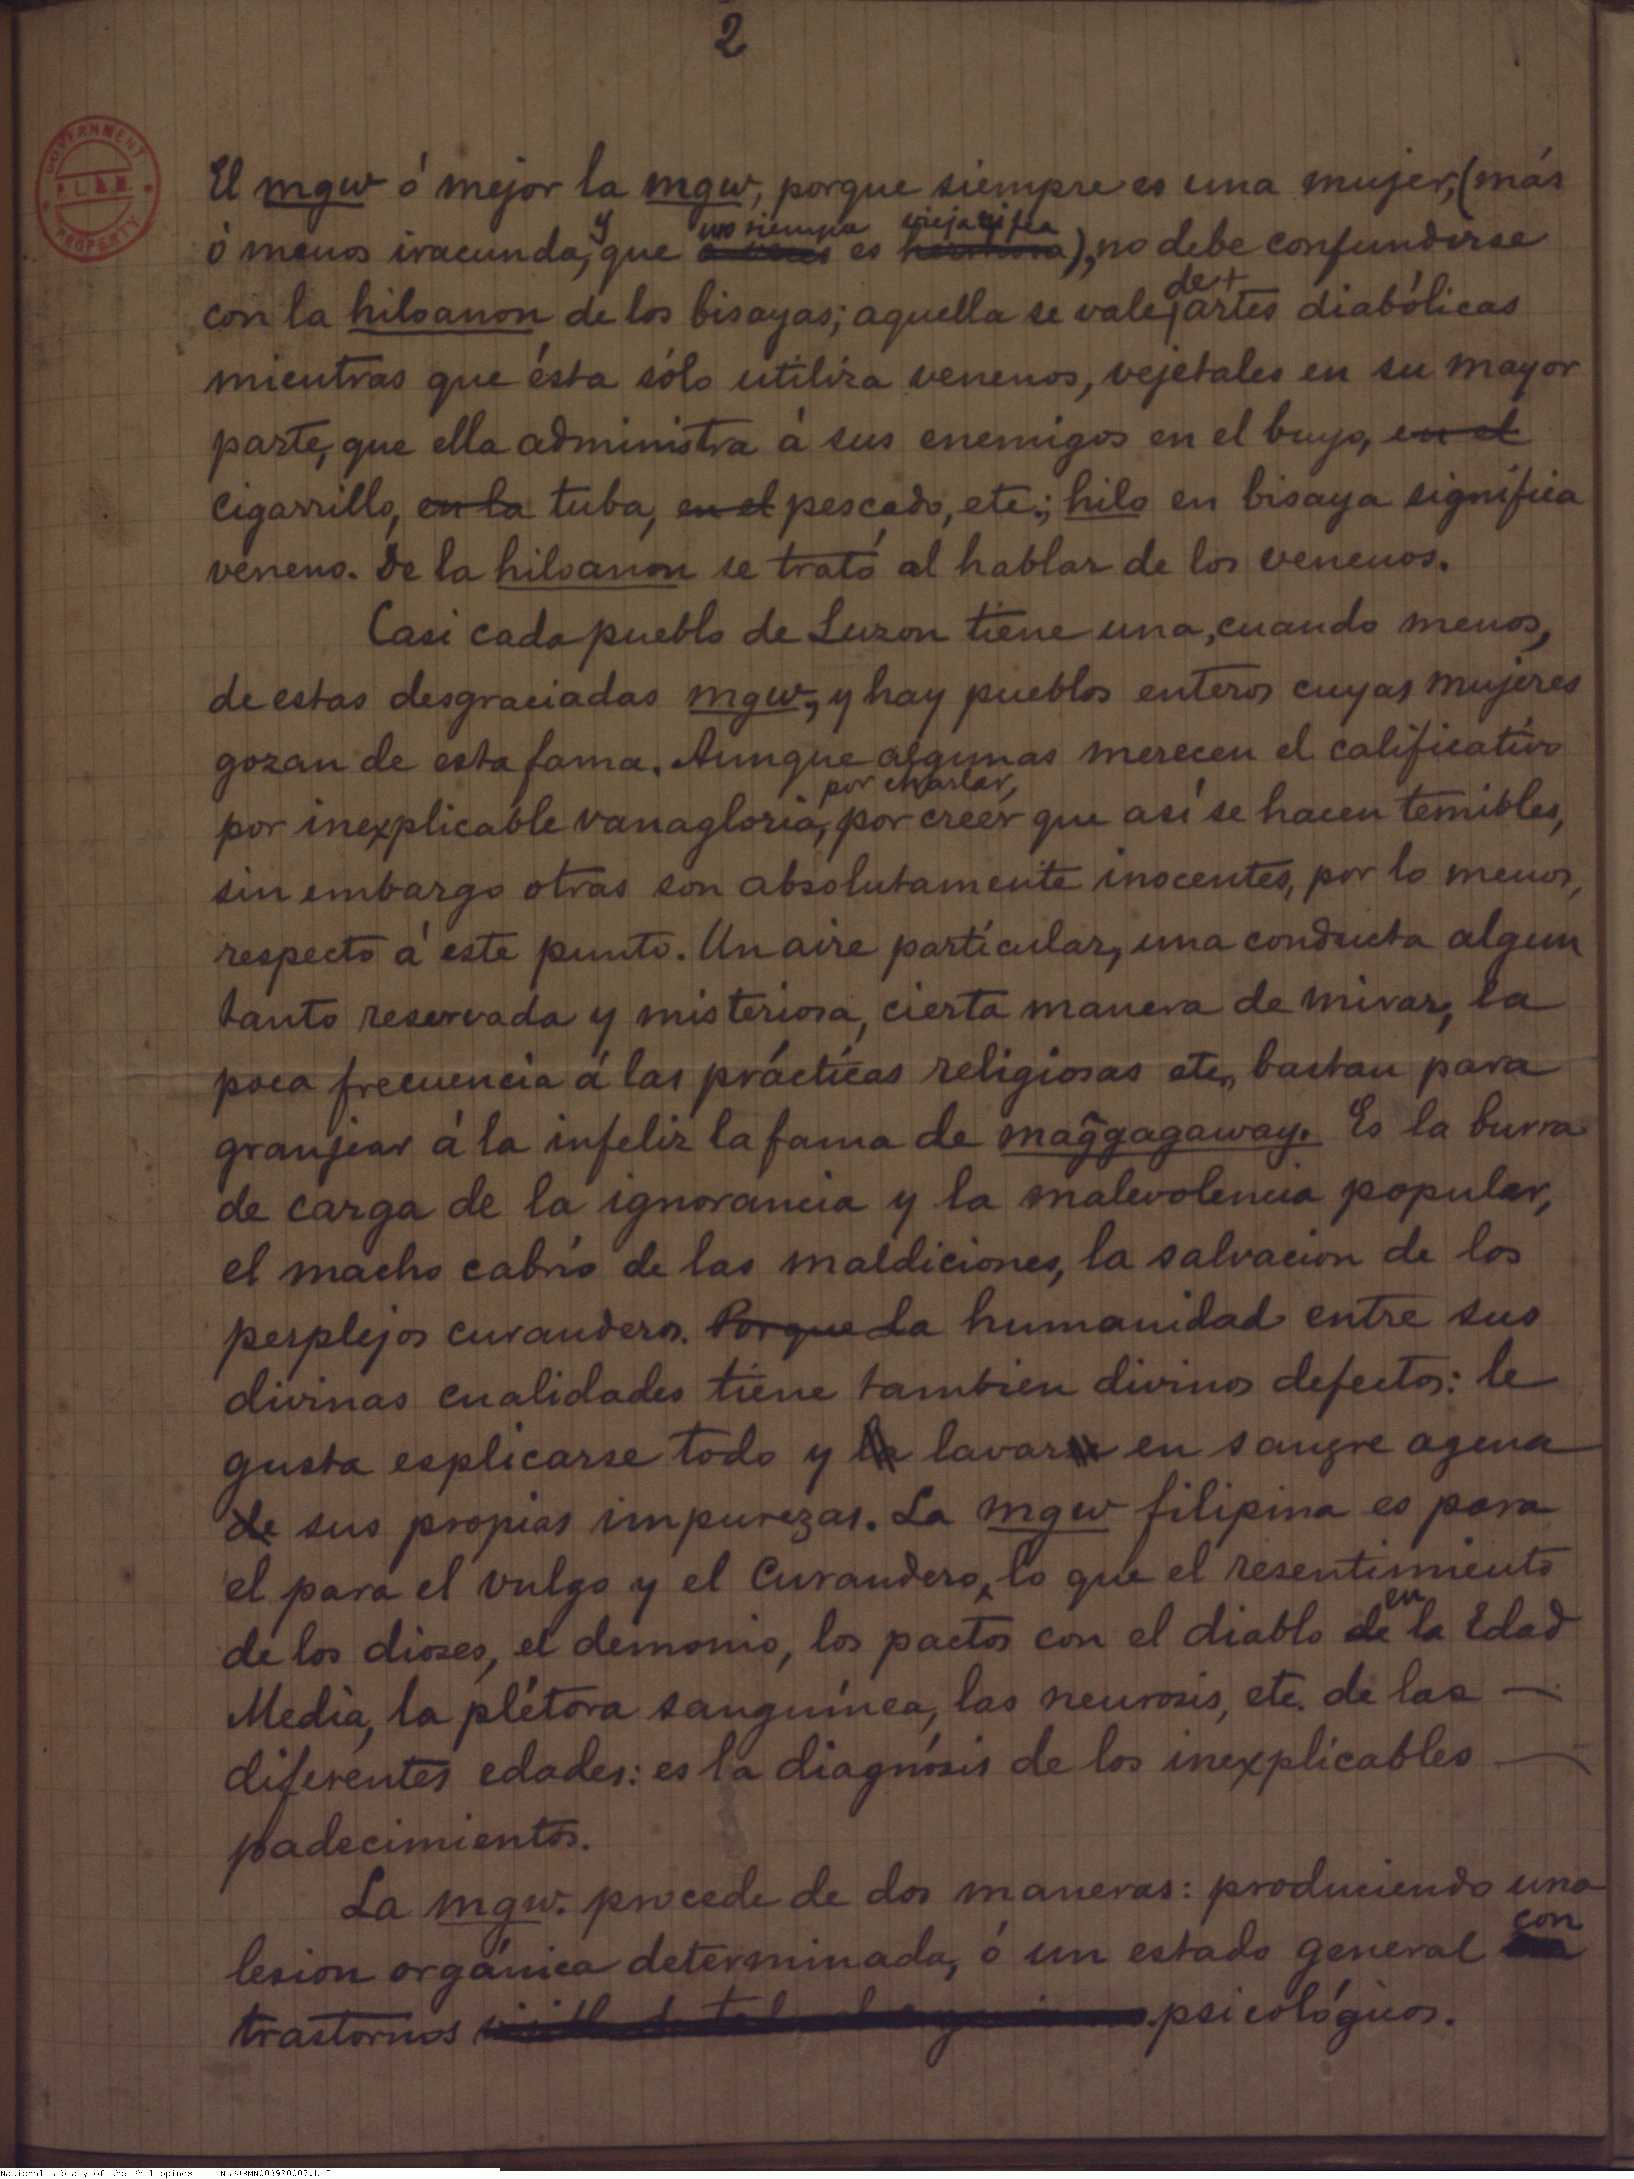 2
GOVERNMENT PROPERTY
El mgw ó mejor la mgw, porque siempre es una mujer, (más
y no siempre vieja
ó menos iracunda, que es), no debe confundirse
de
con la hiloanon de los bisayas; aquella se vale artes diabólicas
mientras que ésta sólo utiliza venenos, vejetales en su mayor
parte, que ella administra á sus enemigos en el buyo, en el
cigarrillo, en la tuba, en el pescado, etc.; hilo en bisaya significa
veneno. De la hiloanon se trató al hablar de los venenos.
Casi cada pueblo de Luzon tiene una, cuando menos,
de estas desgraciadas mgw; y hay pueblos enteros cuyas mujeres
gozan de esta fama. Aunque algunas merecen el calificativo
por charlar,
por inexplicable vanagloria, por creer que así se hacen temibles,
sin embargo otras son absolutamente inocentes, por lo menos,
respecto á este punto. Un aire particular, una conducta algun
tanto reservada y misteriosa, cierta manera de mirar, la
poca frecuencia á las prácticas religiosas etc, bastan para
granjear á la infeliz la fama de mag̃gagaway. Es la burra
de carga de la ignorancia y la malevolencia popular,
el macho cabrío de las maldiciones, la salvacion de los
perplejos curanderos. Porque La humanidad entre sus
divinas cualidades tiene tambien divinos defectos: le
gusta esplicarse todo y lavar en sangre agena
de sus propias impurezas. La mgw filipina es para
el para el vulgo y el Curandero, lo que el resentimiento
en
de los dioses, el demonio, los pactos con el diablo de la Edad
Media, la plétora sanguínea, las neurosis, etc. de las —
diferentes edades: es la diagnósis de los inexplicables —
padecimientos.
La mgw. procede de dos maneras: produciendo una
con
lesion orgánica determinada, ó un estado general
trastornos psicológicos.